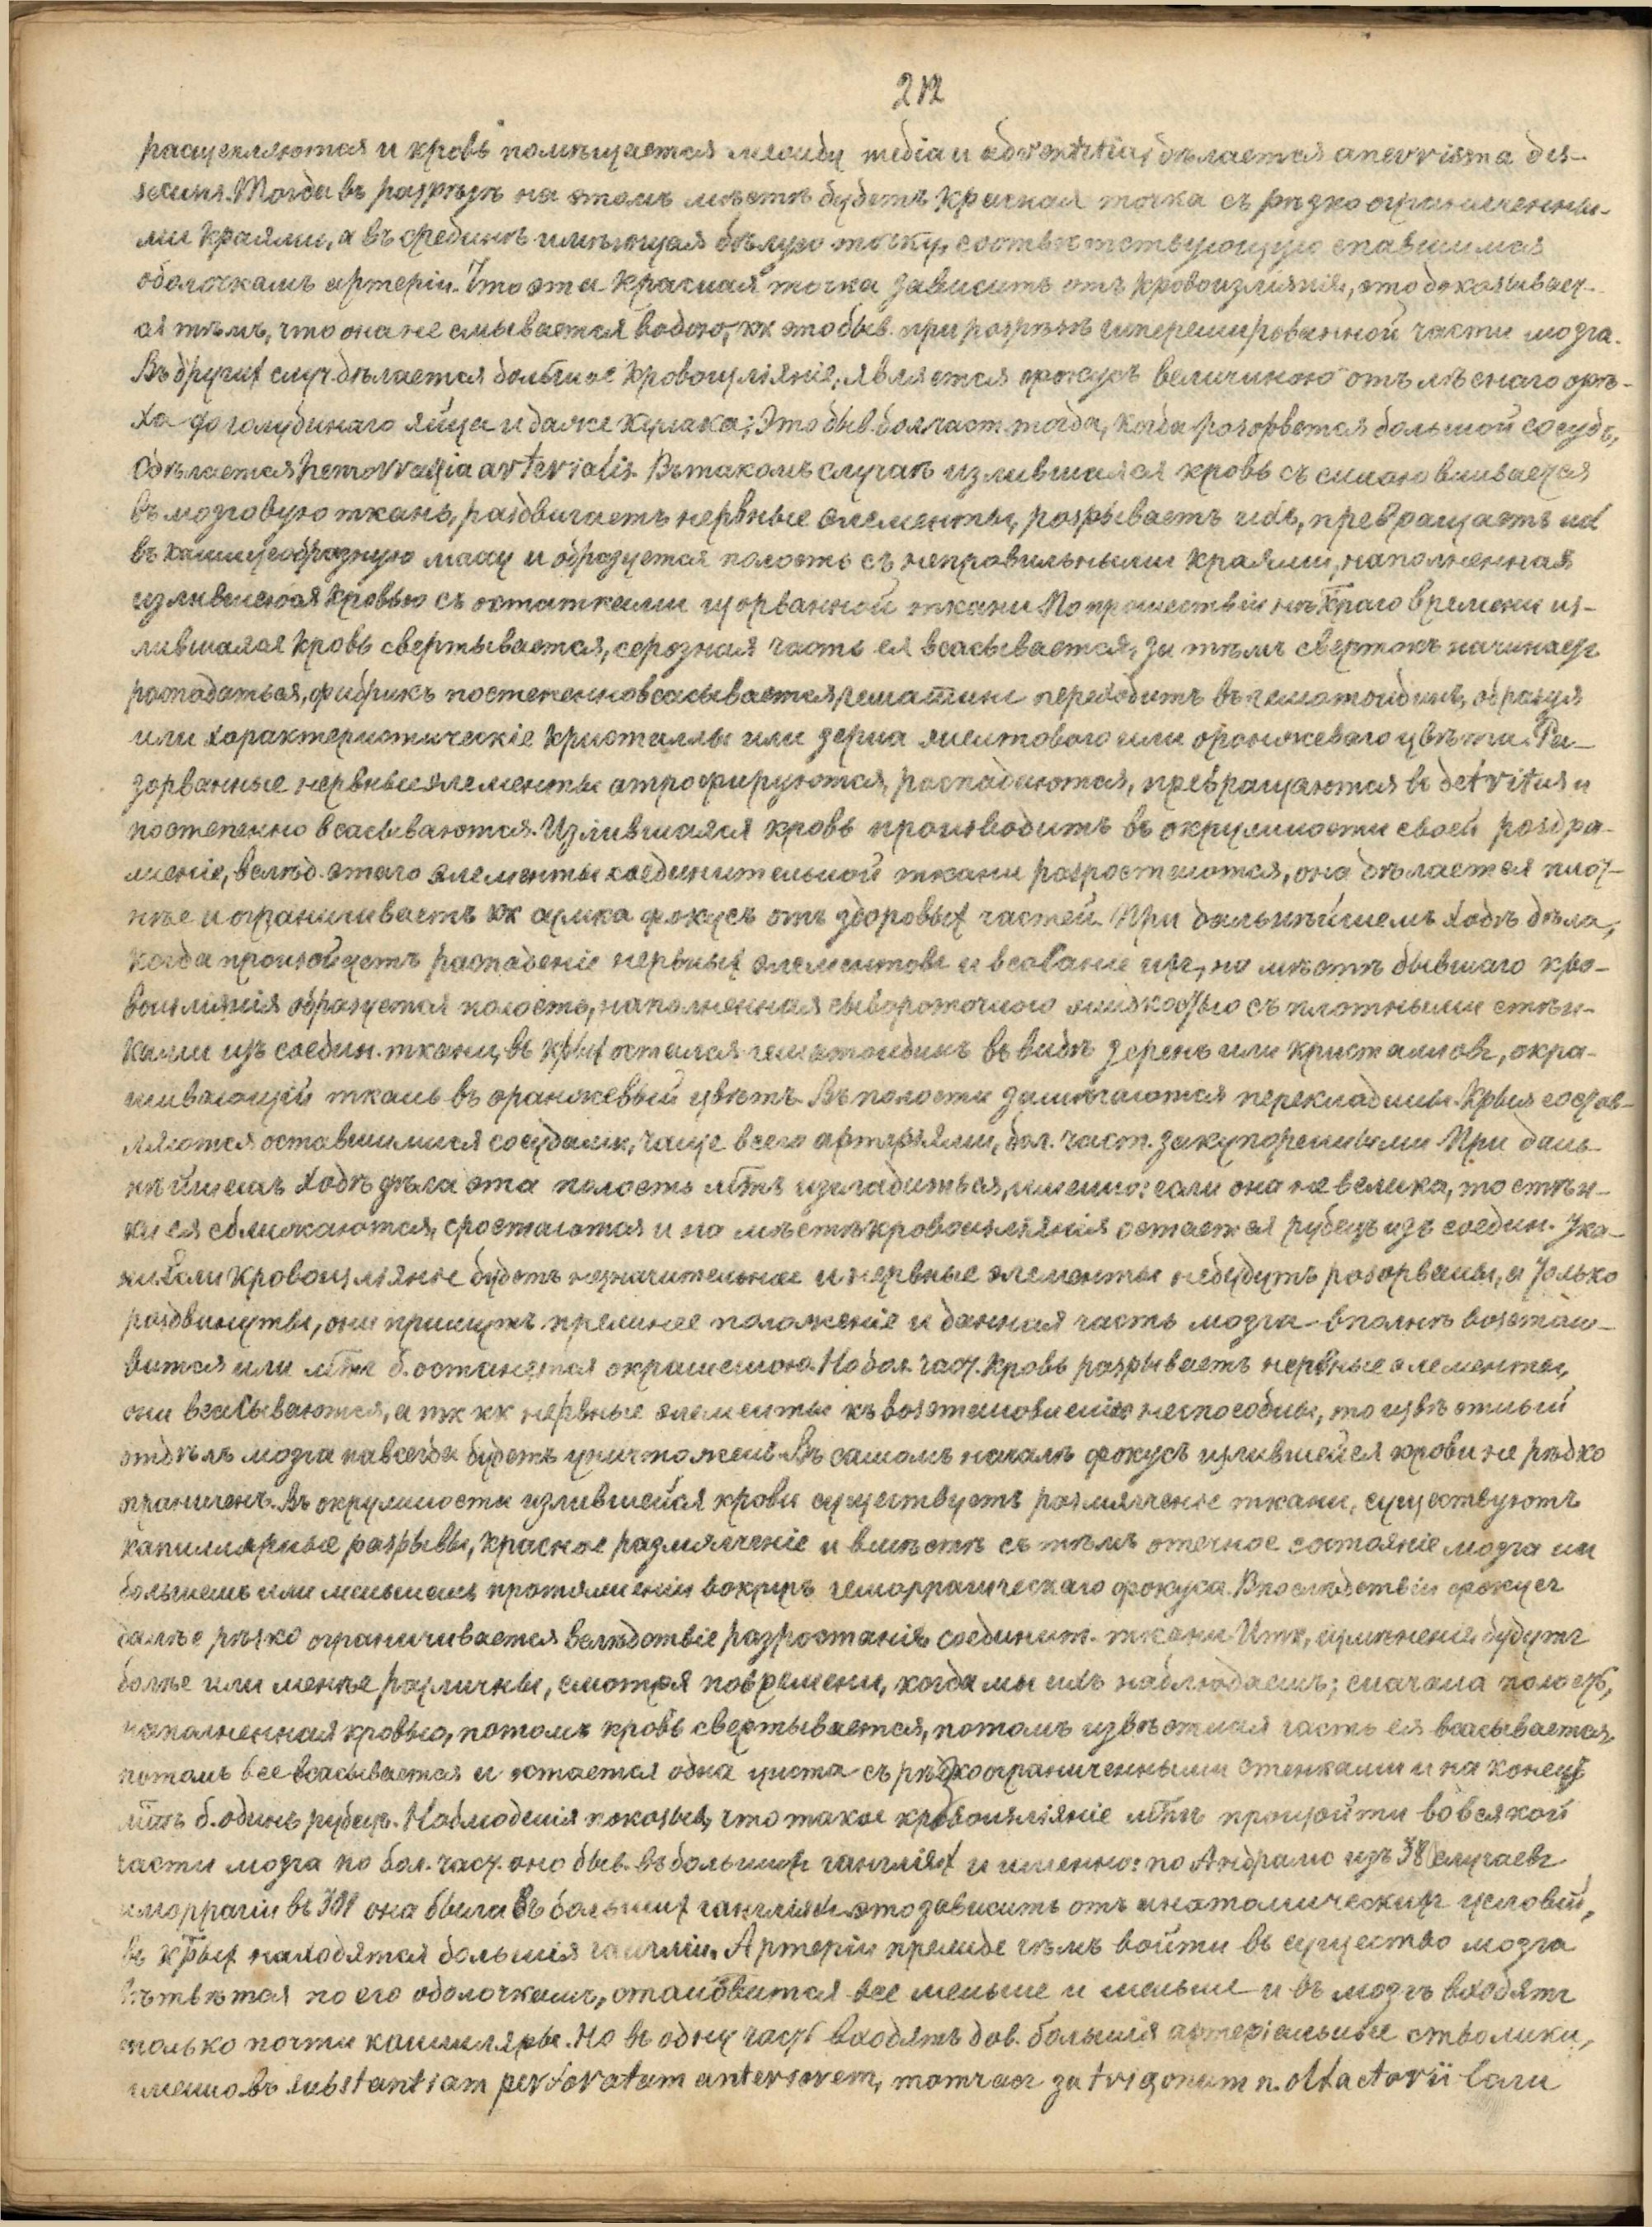 212
расщепляются и кровь помѣщается между media и adventitia, дѣлается anevrisma dis-
secans. Тогда въ разрѣзѣ на этомъ мѣстѣ будетъ красная точка съ рѣзко ограниченны-
ми краями, а въ срединѣ имѣющая бѣлую точку, соотвѣтствующую спавшимся
оболочкамъ артеріи. Что эта красная точка зависитъ отъ кровоизліянія, это доказывает-
ся тѣмъ, что она не смывается водою, кк это быв. при разрѣзѣ гиперемированной части мозга.
Въ других случ. дѣлается большое кровоизліяніе, является фокусъ величиною отъ лѣснаго орѣ-
ха до голубинаго яйца и даже кулака; Это быв. бол. част. тогда, когда разорвется большой сосудъ,
сдѣлается hemorragia arterialis. Въ такомъ случаѣ излившаяся кровь съ силою вливается
въ мозговую ткань, раздвигаетъ нервные элементы, разрываетъ ихъ, превращаетъ их
въ кашицеобразную массу и образуется полость съ неправильными краями, наполненная
излившеюся кровью съ остатками изорванной ткани. По прошествіи нѣктраго времени из-
лившаяся кровь свертывается, серозная часть ея всасывается, за тѣмъ свертокъ начинает
распадаться, фибринъ постепенно всасывается, гематинъ переходитъ въ гематоидинъ, образуя
или характеристическіе кристаллы или зерна желтоваго или оранжеваго цвѣта. Ра-
зорванные нервные элементы атрофируются, распадаются, превращаются въ detritus и
постепенно всасываются. Излившаяся кровь производитъ въ окружности своей раздра-
женіе, вслѣд. этаго элементы соединительной ткани разростаются, она дѣлается плот-
нѣе и ограничиваетъ кк сумка фокусъ отъ здоровых частей. При дальнѣйшемъ ходѣ дѣла,
когда произойдетъ распаденіе нервных элементовъ и всасаніе их, на мѣстѣ бывшаго кро-
воизліянія образуется полость, наполненная сывороточною жидкостью съ плотными стѣн-
ками изъ соедин. ткани, въ крых остался гематоидинъ въ видѣ зеренъ или кристалловъ, окра-
шивающій ткань въ оранжевый цвѣтъ. Въ полости замѣчаются перекладины. Крыя состав-
ляются оставшимися сосудами, чаще всего артеріями, бол. част. закупоренными. При даль-
нѣйшемъ ходѣ дѣла эта полость мтъ изгладиться, именно: если она не велика, то стѣн-
ки ея сближаются, сростаются и на мѣстѣ кровоизліянія остается рубецъ изъ соедин. тка-
ни. Если кровоизліяніе будетъ незначительное и нервные элементы небудутъ разорваны, а только
раздвинуты, они примутъ прежнее положеніе и данная часть мозга вполнѣ возстано-
вится или мтъ б. останется окрашенною. Но бол. част. кровь разрываетъ нервные элементы,
они всасываются, а тк кк нервные элементы къ возстановленію неспособны, то извѣстный
отдѣлъ мозга навсегда будетъ уничтоженъ. Въ самомъ началѣ фокусъ излившейся крови не рѣзко
ограниченъ. Въ окружности излившейся крови существуетъ размягченіе ткани, существуютъ
капиллярные разрывы, красное размягченіе и вмѣстѣ съ тѣмъ отечное состояніе мозга на
большемъ или меньшемъ протяженіи вокругъ геморрагическаго фокуса. Впослѣдствіи фокусъ
далѣе рѣзко ограничивается вслѣдствіе разростанія соединит. ткани. Итк, измѣненія будутъ
болѣе или менѣе различны, смотря повремени, когда мы ихъ наблюдаемъ; сначала полость,
наполненная кровью, потомъ кровь свертывается, потомъ извѣстная часть ея всасывается,
потомъ все всасывается и остается одна циста съ рѣзкоограниченными стенками и на конецъ
мтъ б. одинъ рубецъ. Наблюденія показыв, что такое кровоизліяніе мтъ произойти во всякой
части мозга но бол. част. оно быв. въ большихъ гангліях и именно: по Андралю изъ случаевъ
геморрагіи въ она была въ больших гангліях. это зависитъ отъ анатомическихъ условій,
въ крых находятся большія гангліи. Артеріи прежде чѣмъ войти въ существо мозга
вѣтвятся по его оболочкамъ, становятся все меньше и меньше и въ мозгъ входятъ
только почти капилляры. Но въ одну часть входятъ дов. большія артеріальные стволики,
именно въ substantiam perforatam anteriorem, тотчас за trigonum n. olfactorii. Если